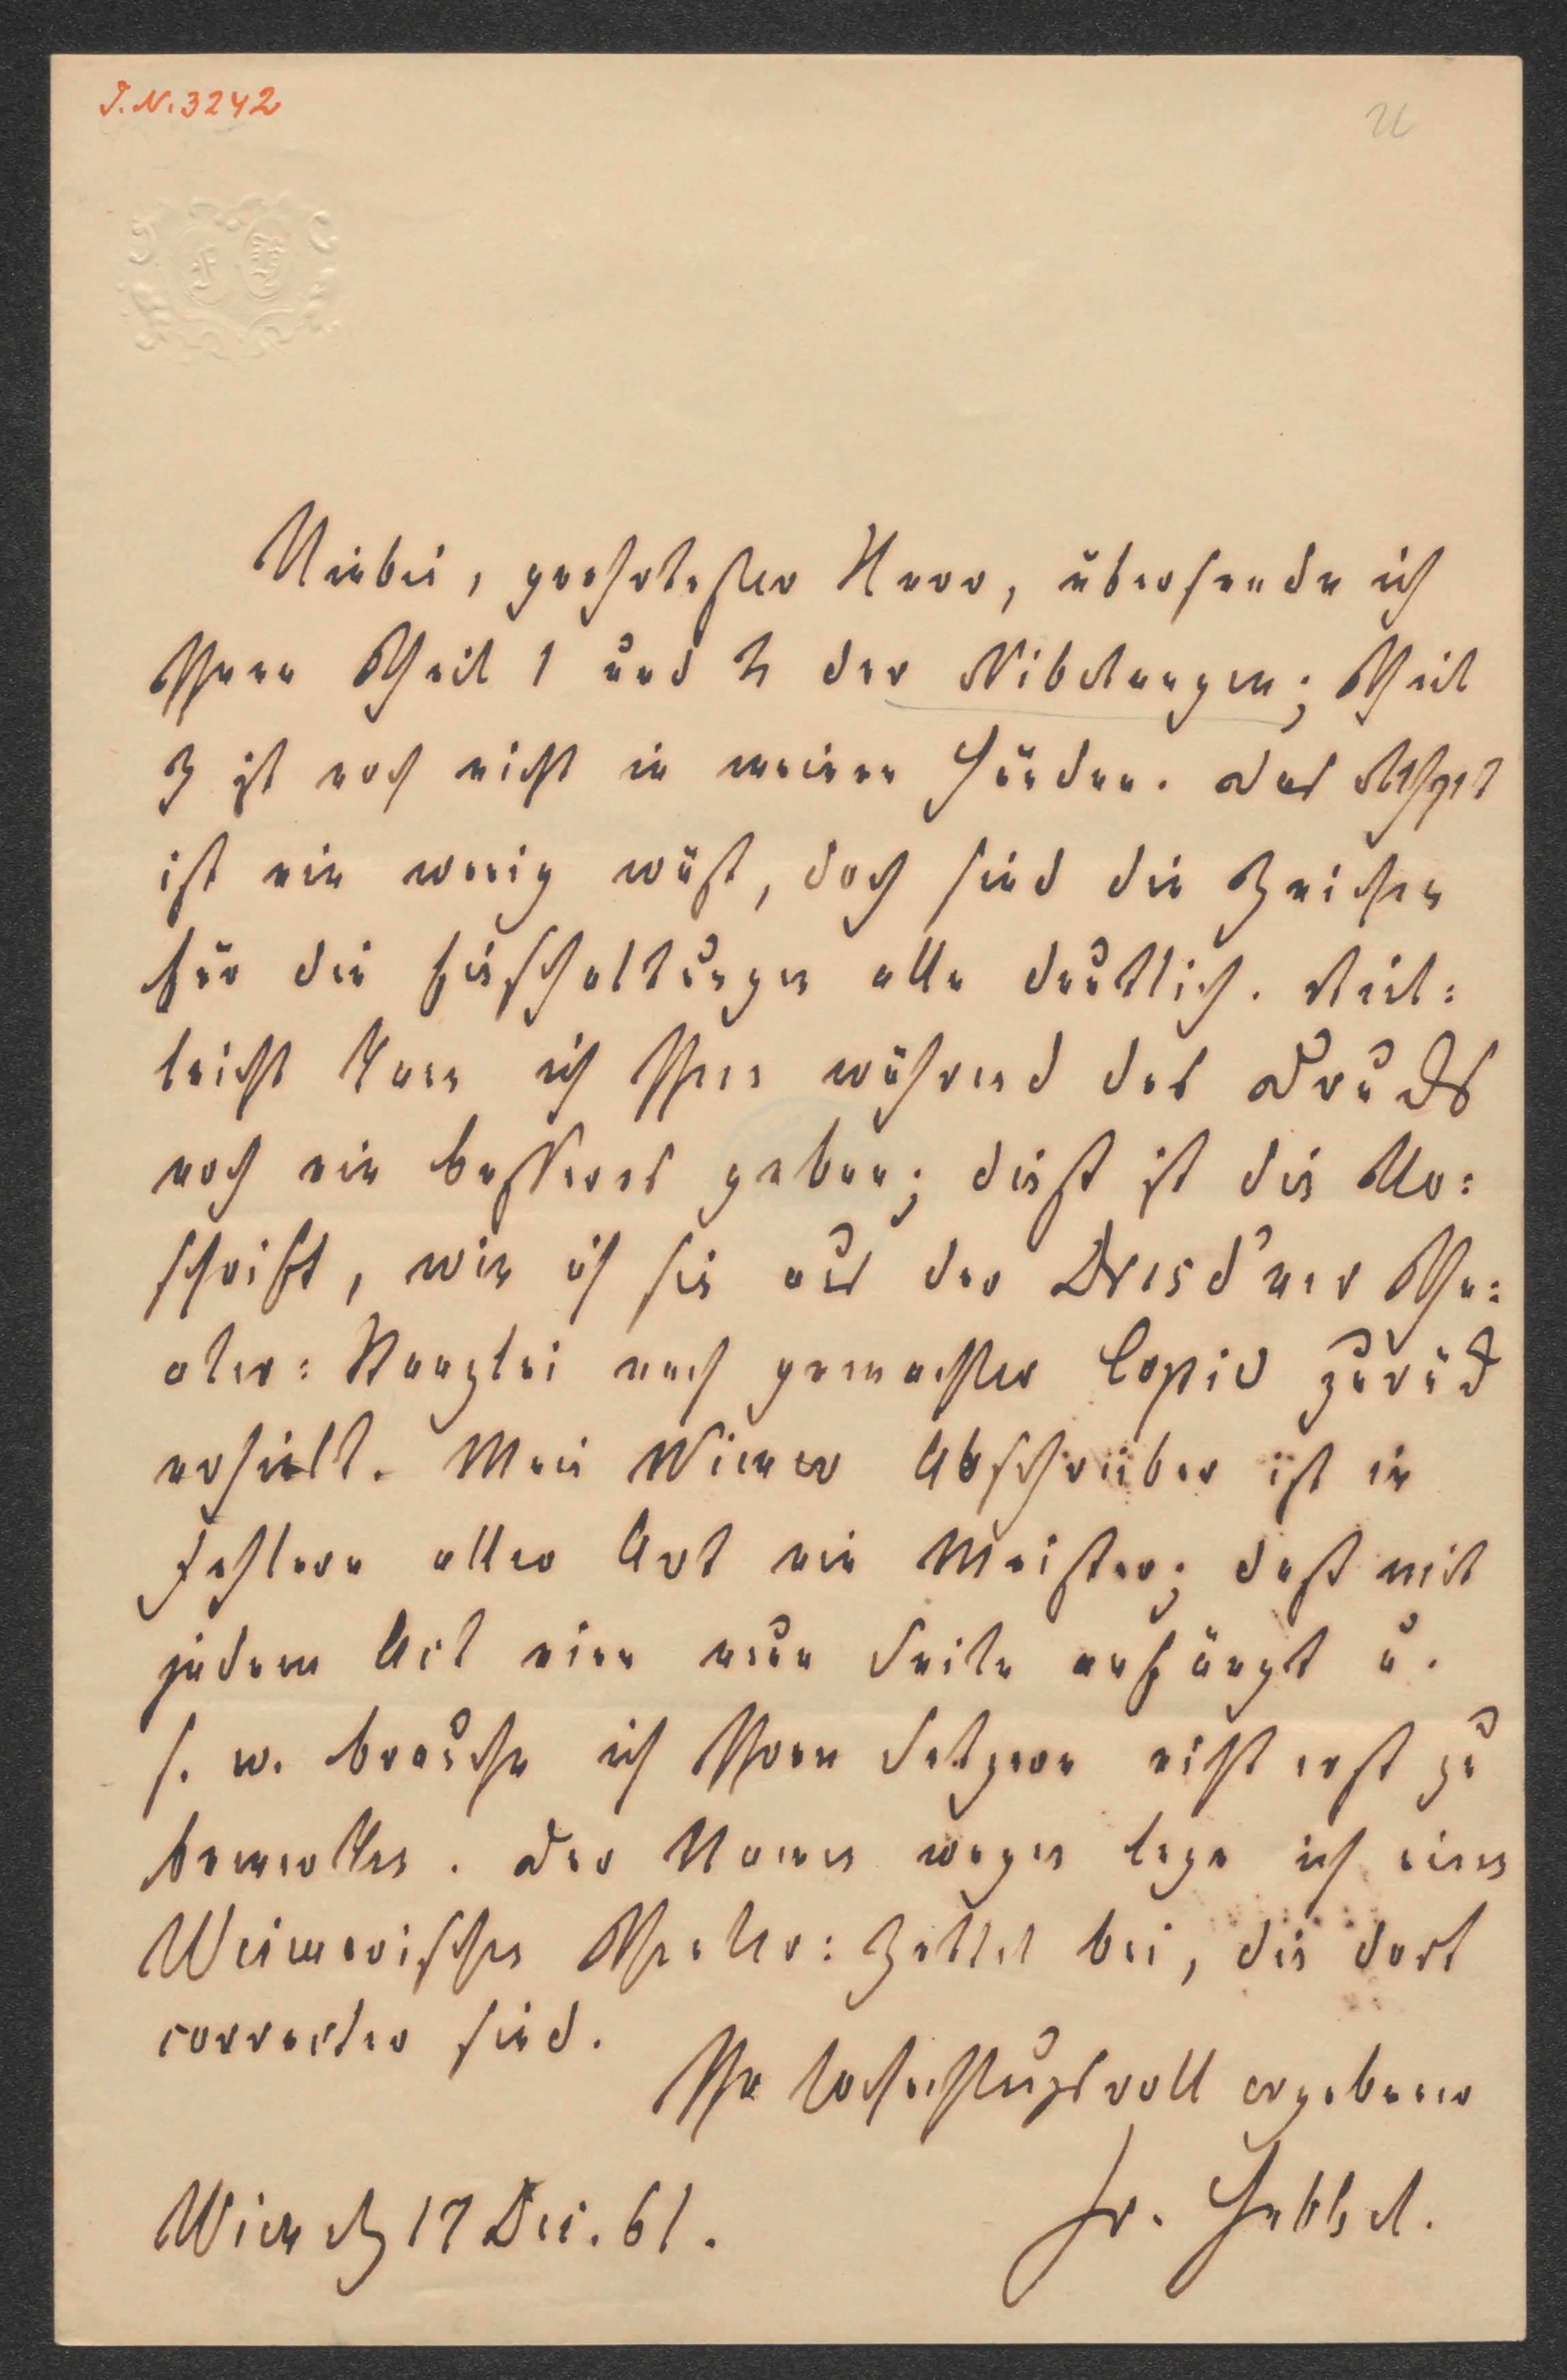 J. N. 3242
Hiebei, geehrtester Herr, übersende ich
Ihnen Theil 1 und 2 der Nibelungen; Theil
3 ist noch nicht in meinen Händen. Das Mspt
ist ein wenig wüst, doch sind die Zeichen
für die Einschaltungen alle deutlich. Viel=
leicht kann ich Ihnen während des Drucks
noch ein besseres geben; dieß ist die Ur=
schrift, wie ich sie aus der Dresd'ner The=
ater=Kanzlei nach gemachter Copie zurück
erhielt. Mein Wiener Abschreiber ist in
Fehlern aller Art ein Meister; daß mit
jedem Act eine neue Seite anfängt u.
s. w. brauche ich Ihren Setzern nicht erst zu
bemerken. Der Namen wegen lege ich einen
Weimarischen Theater=Zettel bei, die dort
correcter sind.
Ihr hochachtungsvoll ergebener
Wien d 17 Dec. 61.
Fr. Hebbel.